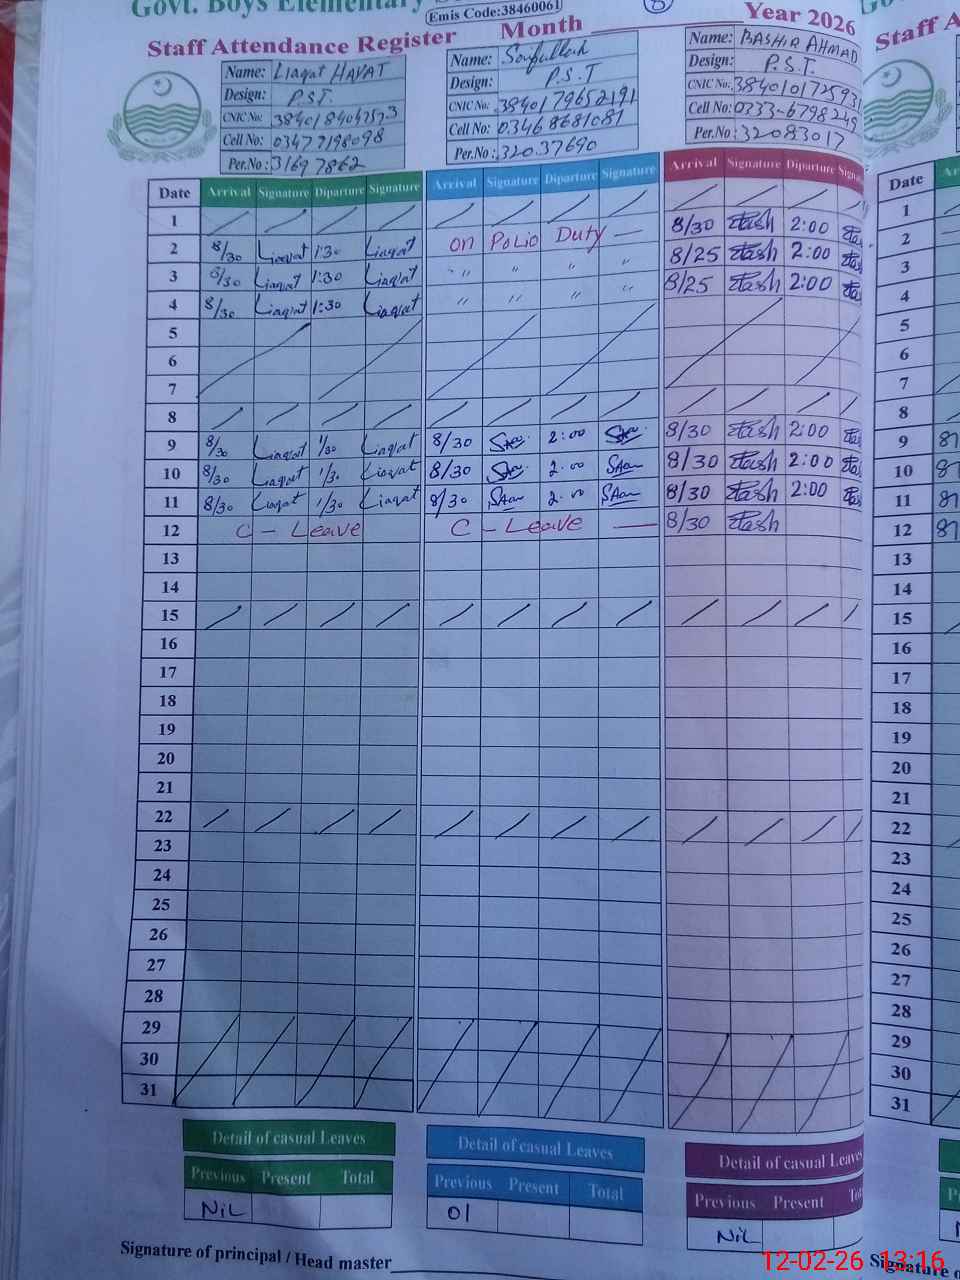 Govt. Boys Elementary
Emis Code:38460061
8
Staff Attendance Register Month Year 2026
Name: Liaqat HAYAT
Design: P.S.T.
CNIC No:
Cell No: 03477198098
Per.No: 31697862
Name: Saifullah
Design: P.S.T
CNIC No: 3840179652191
Cell No: 03468681081
Per.No: 32037690
Name: BASHIR AHMAD
Design: P.S.T.
CNIC No: 3840101725931
Cell No: 0333-6798249
Per.No: 32083017
Staff A
Date Arrival Signature Diparture Signature Arrival Signature Diparture Signature Arrival Signature Diparture Signa Date Ar
1 1
2 8/30 Liaqat 1:30 Liaqat on Polio Duty — 8/30 2:00 2
3 8/30 Liaqat 1:30 Liaqat " " " " 8/25 2:00 3
4 8/30 Liaqat 1:30 Liaqat " " " " 8/25 2:00 4
5 5
6 6
7 7
8 8
9 8/30 Liaqat 1/30 Liaqat 8/30 2:00 8/30 2:00 9
10 8/30 Liaqat 1/30 Liaqat 8/30 2:00 8/30 2:00 10
11 8/30 Liaqat 1/30 Liaqat 8/30 2:00 8/30 2:00 11
12 C - Leave C - Leave — 8/30 12
13 13
14 14
15 15
16 16
17 17
18 18
19 19
20 20
21 21
22 22
23 23
24 24
25 25
26 26
27 27
28 28
29 29
30 30
31 31
Detail of casual Leaves Detail of casual Leaves Detail of casual Leaves
Previous Present Total Previous Present Total Previous Present
NiL 01 NiL
Signature of principal / Head master
Signature o
12-02-26 13:16